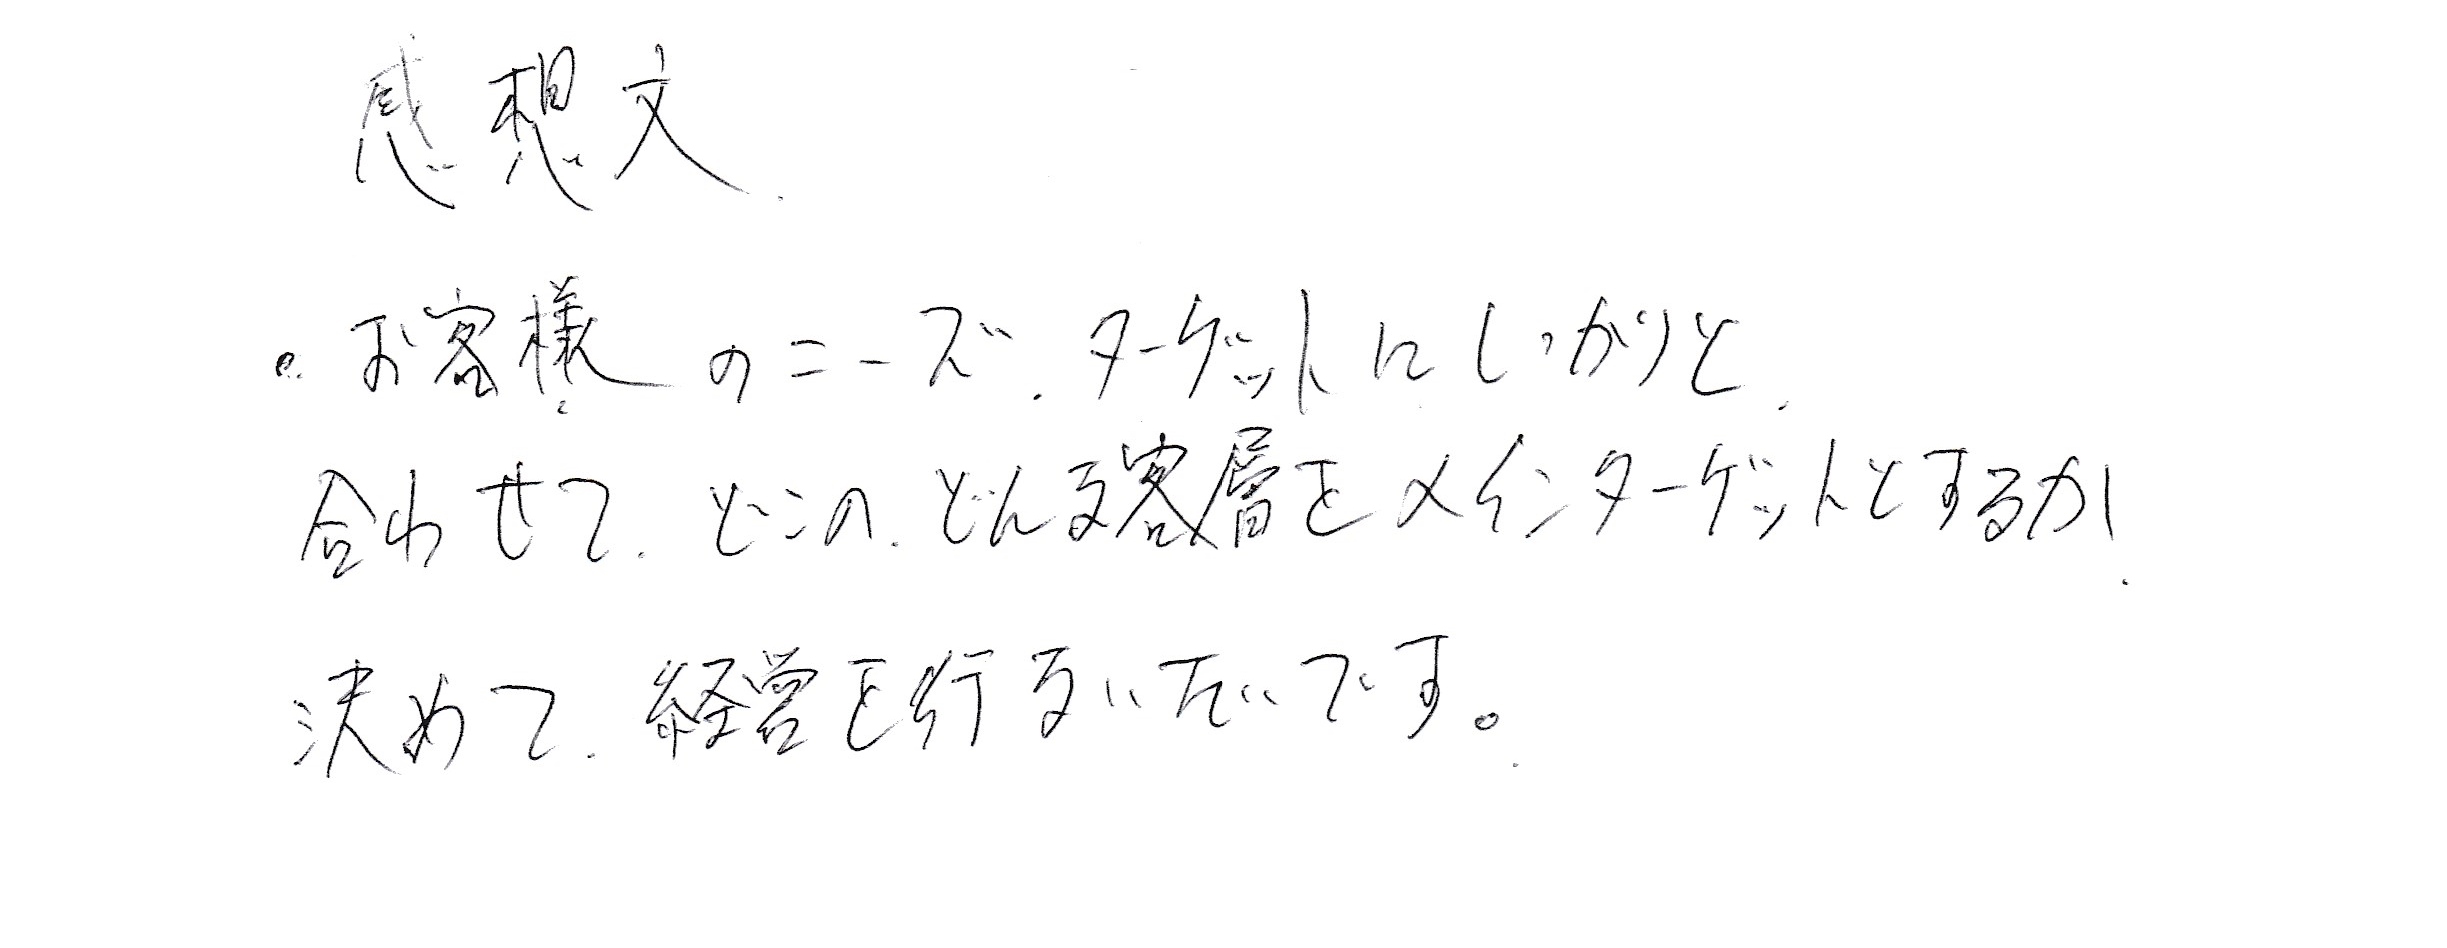 感想文
・お客様のニーズ、ターゲットにしっかりと、
合わせて、どこの、どんな客層をメインターゲットとするか、
決めて、経営を行ないたいです。